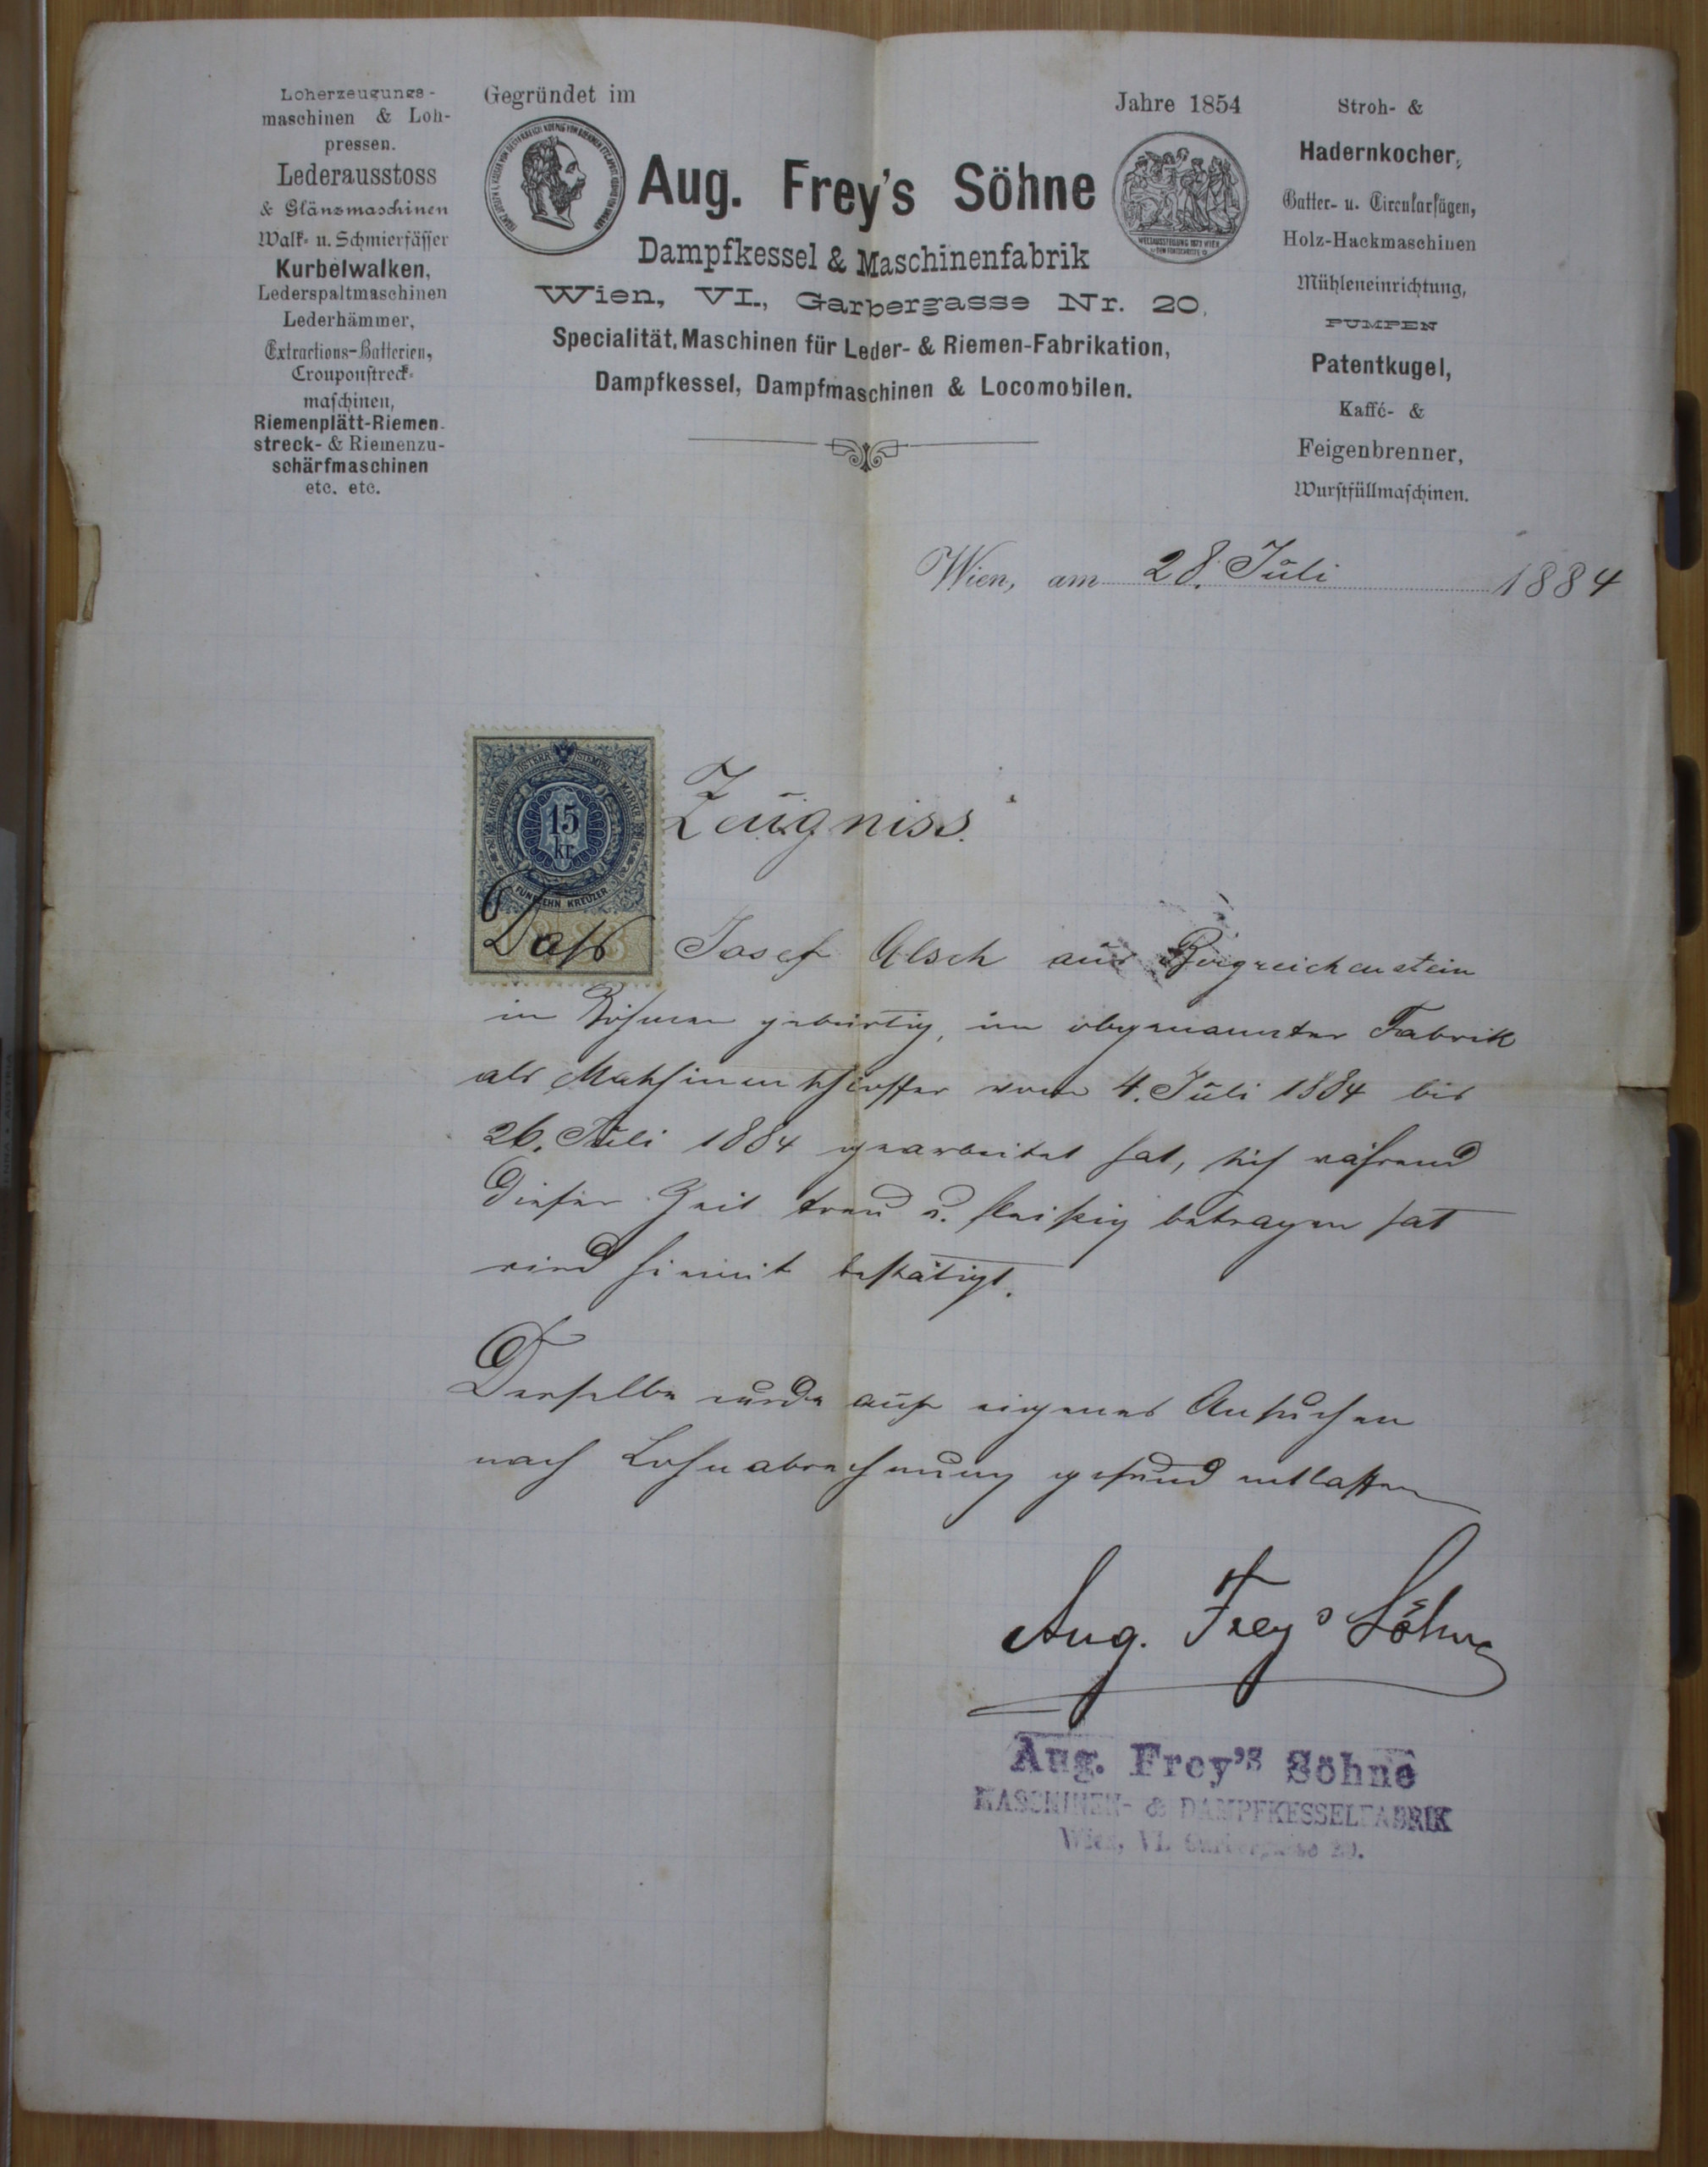 Loherzeugungs-
maschinen & Loh-
pressen.
Lederausstoss
& Glänzmaschinen
Walk- u. Schmierfässer
Kurbelwalken,
Lederspaltmaschinen
Lederhämmer,
Extractions-Batterien,
Crouponstreck-
maschinen,
Riemenplätt-Riemen-
streck- & Riemenzu-
schärfmaschinen
etc. etc.
Gegründet im Jahre 1854
Aug. Frey's Söhne
WELTAUSSTELLUNG 1873 WIEN
DEM FORTSCHRITTE
Dampfkessel & Maschinenfabrik
Wien, VI., Garbergasse Nr. 20,
Specialität, Maschinen für Leder- & Riemen-Fabrikation,
Dampfkessel, Dampfmaschinen & Locomobilen.
Stroh- &
Hadernkocher,
Gatter- u. Circularsägen,
Holz-Hackmaschinen
Mühleneinrichtung,
PUMPEN
Patentkugel,
Kaffé- &
Feigenbrenner,
Wurstfüllmaschinen.
Wien, am 28. Juli 1884
KAIS. KÖN. ÖSTERR. STEMPEL MARKE
15
kr.
FÜNFZEHN KREUZER
Zeugniss.
Dass Josef Alsch aus Bergreichenstein
in Böhmen gebürtig, in obgenannter Fabrik
als Maschinenschlosser vom 4. Juli 1884 bis
26. Juli 1884 gearbeitet hat, sich während
dieser Zeit treu u. fleißig betragen hat
wird hiemit bestätigt.
Derselbe wurde auf eigenes Ansuchen
nach Lohnabrechnung gesund entlassen
Aug. Frey's Söhne
Aug. Frey's Söhne
MASCHINEN- & DAMPFKESSELFABRIK
Wien, VI. Garbergasse 20.